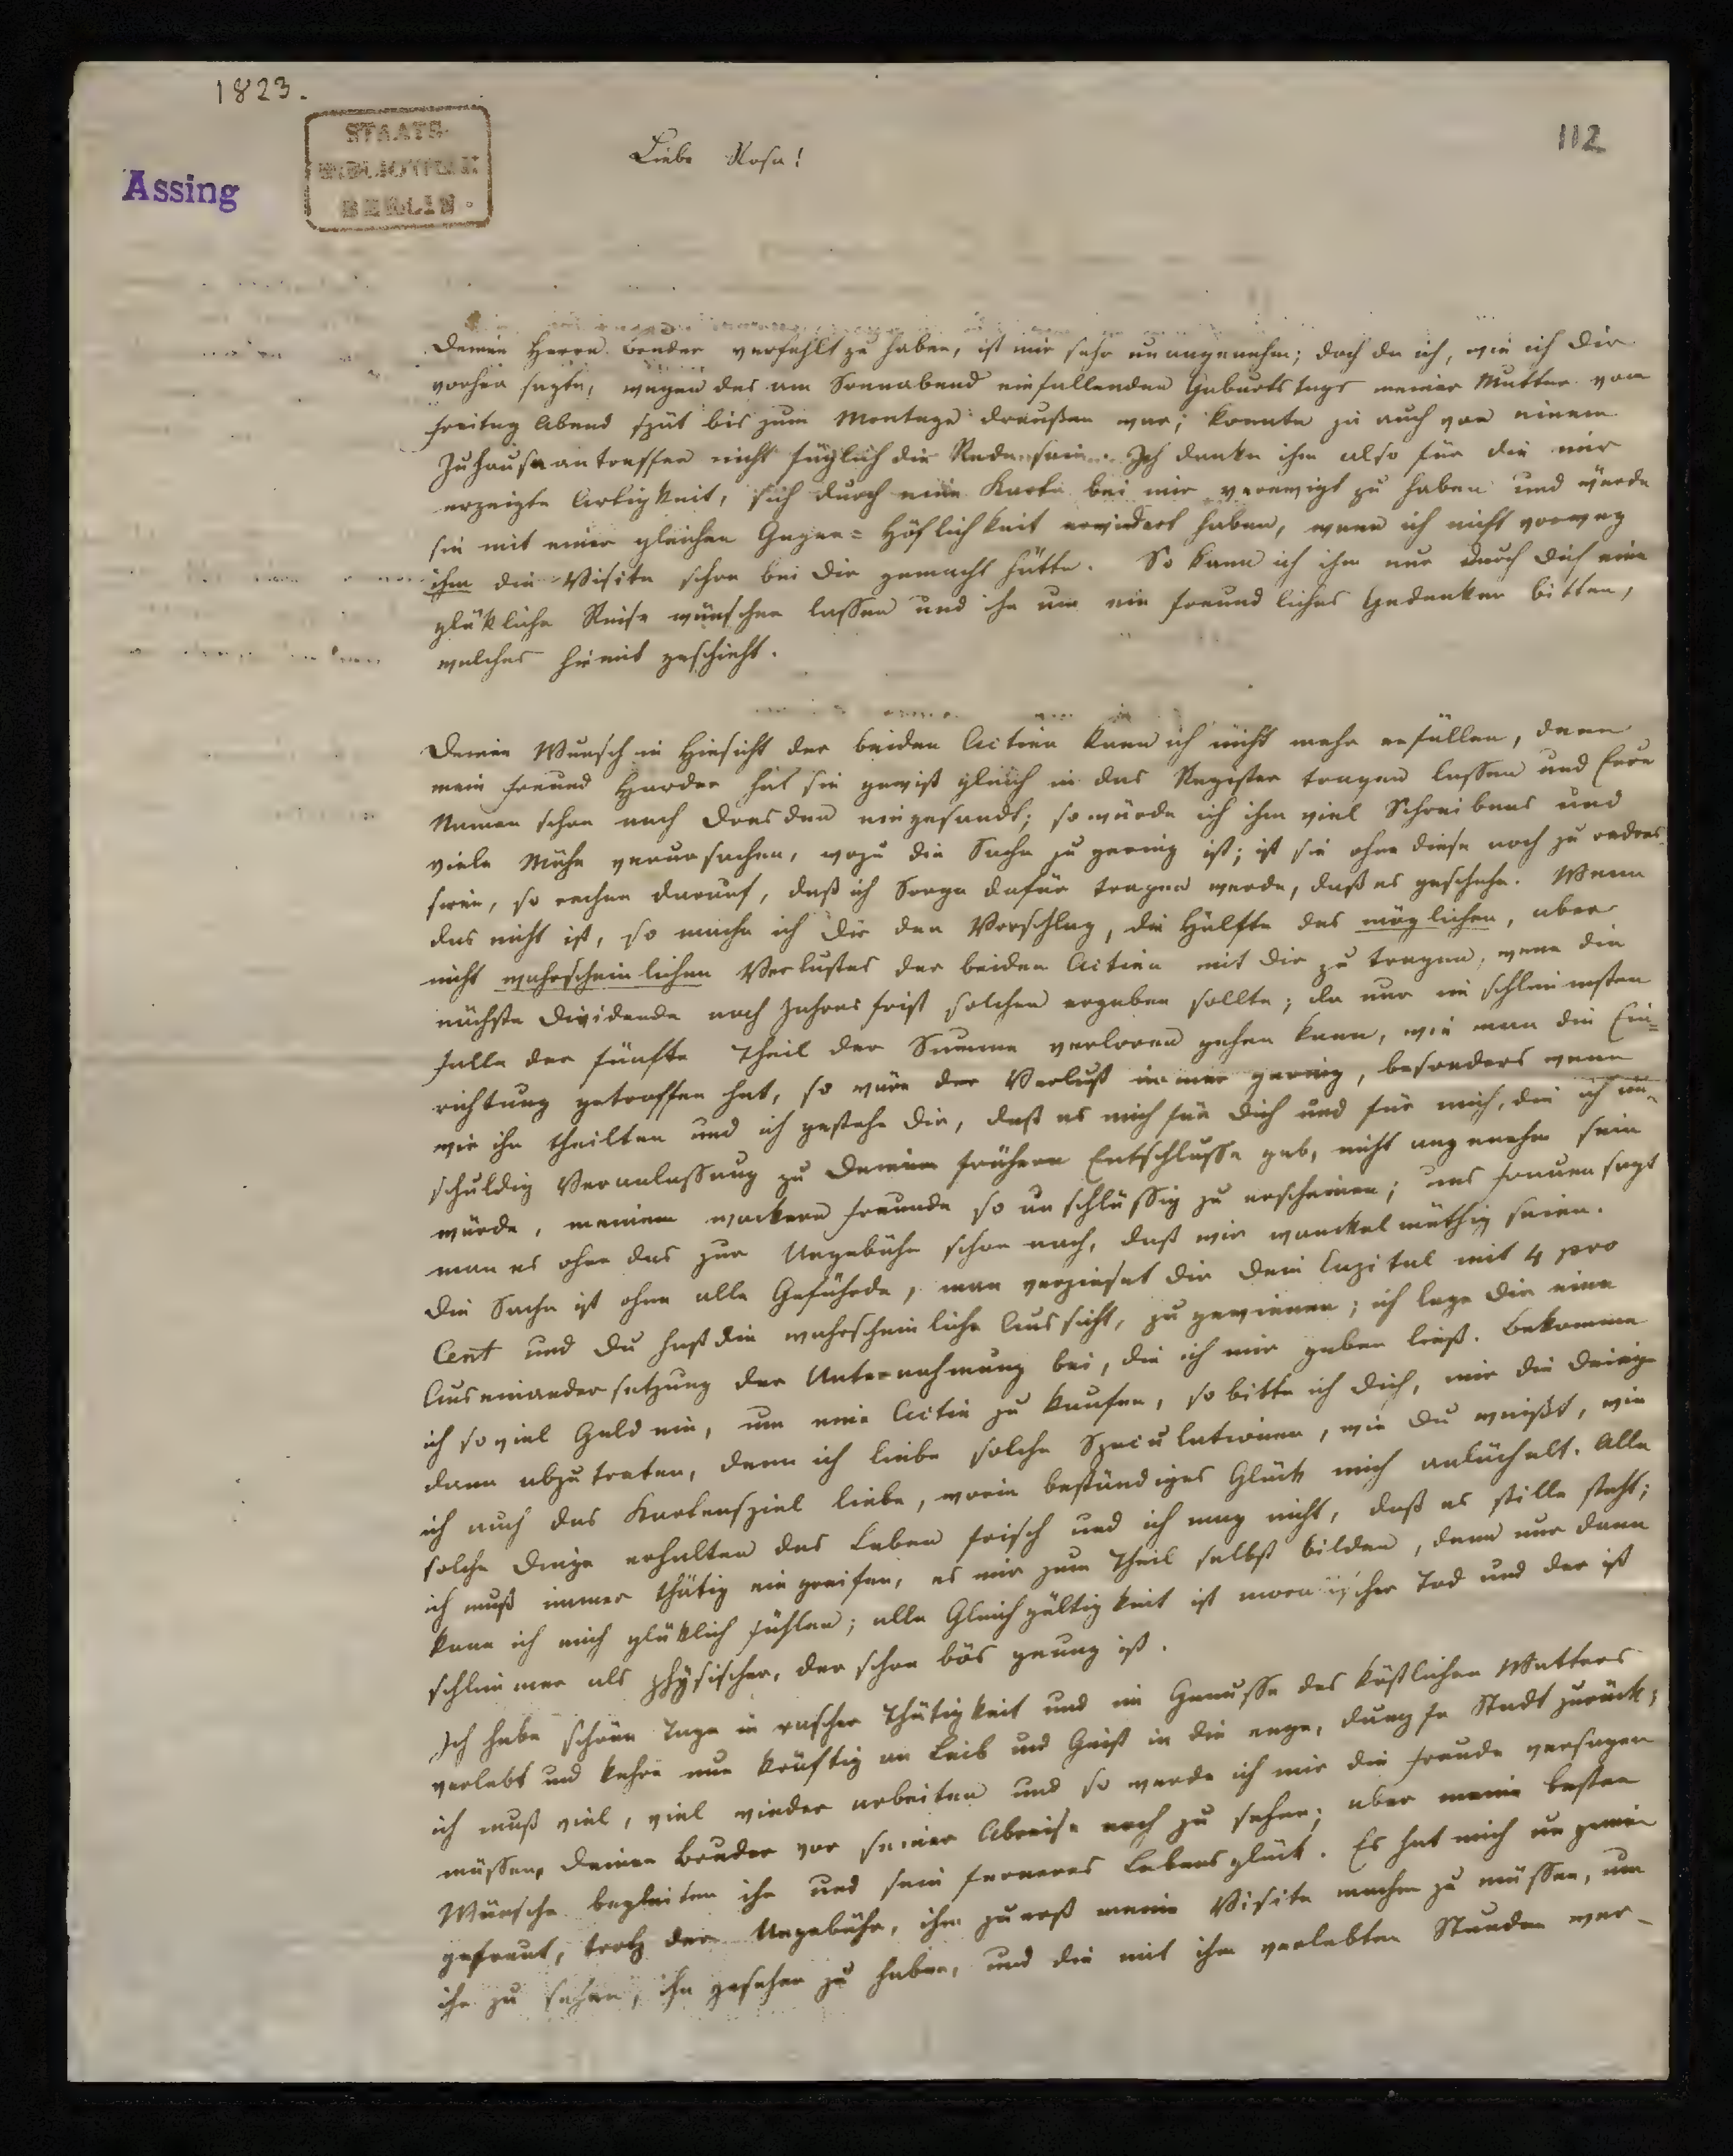 1823.
112
STAATS-
BIBLIOTHEK
BERLIN
Assing
Liebe Rosa!
Deinen Herrn Bruder verfehlt zu haben, ist mir sehr unangenehm; doch da ich, wie ich Dir
vorher sagte, wegen des am Sonnabend einfallenden Geburtstags meiner Mutter von
Freitag Abend spät bis zum Montage draußen war; konnte ja auch von einem
Zuhauseantreffen nicht füglich die Rede sein. Ich danke ihm also für die mir
erzeigte Artigkeit, sich durch eine Karte bei mir verewigt zu haben und würde
sie mit einer gleichen Gegen=Höflichkeit erwidert haben, wenn ich nicht vorweg
ihm die Visite schon bei Dir gemacht hätte. So kann ich ihm nur durch Dich eine
glükliche Reise wünschen lassen und ihn um ein freundliches Gedenken bitten,
welches hiemit geschieht.
Deinen Wunsch in Hinsicht der beiden Actien kann ich nicht mehr erfüllen, denn
mein Freund Harder hat sie gewiß gleich in das Register tragen lassen und Eure
Namen schon nach Dresden eingesandt; so würde ich ihm viel Schreibens und
viele Mühe verursachen, wozu die Sache zu gering ist; ist sie ohne diese noch zu redres-
siren, so rechne darauf, daß ich Sorge dafür tragen werde, daß es geschehe. Wenn
das nicht ist, so mache ich Dir den Vorschlag, die Hälfte des möglichen, aber
nicht wahrscheinlichen Verlustes der beiden Actien mit Dir zu tragen, wenn die
nächste Dividende nach Jahresfrist solchen ergeben sollte; da nur im schlimmsten
Falle der fünfte Theil der Summe verloren gehen kann, wie man die Ein=
richtung getroffen hat, so wäre der Verlust immer gering, besonders wenn
wir ihn theilten und ich gestehe Dir, daß es mich für Dich und für mich, die ich un-
schuldig Veranlassung zu Deinem frühern Entschlusse gab, nicht angenehm sein
würde, meinem wackern Freunde so unschlüssig zu erscheinen; uns Frauen sagt
man es ohne das zur Ungebühr schon nach, daß wir wankelmüthig seien.
Die Sache ist ohne alle Gefährde, man verzinset Dir Dein Capital mit 4 pro
Cent und Du hast die wahrscheinliche Aussicht, zu gewinnen; ich lege Dir eine
Auseinandersetzung der Unternehmung bei, die ich mir geben ließ. Bekomme
ich soviel Geld ein, um eine Actie zu kaufen, so bitte ich Dich, mir die Deinige
dann abzutreten, denn ich liebe solche Speculationen, wie Du weißt, wie
ich auch das Kartenspiel liebe, worin beständiges Glück mich anlächelt. Alle
solche Dinge erhalten das Leben frisch und ich mag nicht, daß es stille steht;
ich muß immer thätig eingreifen, es mir zum Theil selbst bilden, denn nur dann
kann ich mich glüklich fühlen; alle Gleichgültigkeit ist moralischer Tod und der ist
schlimmer als physischer, der schon bös genug ist.
Ich habe schöne Tage in rascher Thätigkeit und im Genusse des köstlichen Wetters
verlebt und kehre nun kräftig an Leib und Geist in die enge, dumpfe Stadt zurück;
ich muß viel, viel wieder arbeiten und so werde ich mir die Freude versagen
müssen, Deinen Bruder vor seiner Abreise noch zu sehen; aber meine besten
Wünsche begleiten ihn und sein ferneres Lebensglück. Es hat mich ungemein
gefreut, trotz der Ungebühr, ihm zuerst meine Visite machen zu müssen, um
ihn zu sehen, ihn gesehen zu haben, und die mit ihm verlebten Stunden wer-